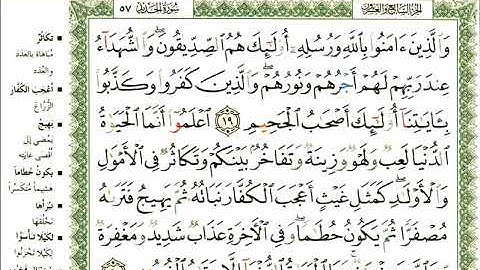 الجزء السابع والعشرون
سورة الحديد
٥٧
وَالَّذِينَ ءَامَنُوا بِاللَّهِ وَرُسُلِهِ أُولَٰئِكَ هُمُ الصِّدِّيقُونَ وَالشُّهَدَاءُ
عِندَ رَبِّهِمْ لَهُمْ أَجْرُهُمْ وَنُورُهُمْ وَالَّذِينَ كَفَرُوا وَكَذَّبُوا
بِـَٔايَٰتِنَا أُولَٰئِكَ أَصْحَٰبُ الْجَحِيمِ ١٩ اعْلَمُوا أَنَّمَا الْحَيَوٰةُ
الدُّنْيَا لَعِبٌ وَلَهْوٌ وَزِينَةٌ وَتَفَاخُرٌ بَيْنَكُمْ وَتَكَاثُرٌ فِي الْأَمْوَٰلِ
وَالْأَوْلَٰدِ كَمَثَلِ غَيْثٍ أَعْجَبَ الْكُفَّارَ نَبَاتُهُ ثُمَّ يَهِيجُ فَتَرَىٰهُ
مُصْفَرًّا ثُمَّ يَكُونُ حُطَٰمًا وَفِي الْءَاخِرَةِ عَذَابٌ شَدِيدٌ وَمَغْفِرَةٌ
تكاثر
مباهاة بالعدد
والعدد
أعجب الكفار
الزراع
يهيج
يمضي إلى
أقصى غايته
يكون حطاما
هشيما متكسرا
نبرأها
نخلقها
لكيلا تأسوا
لكيلا تحزنوا